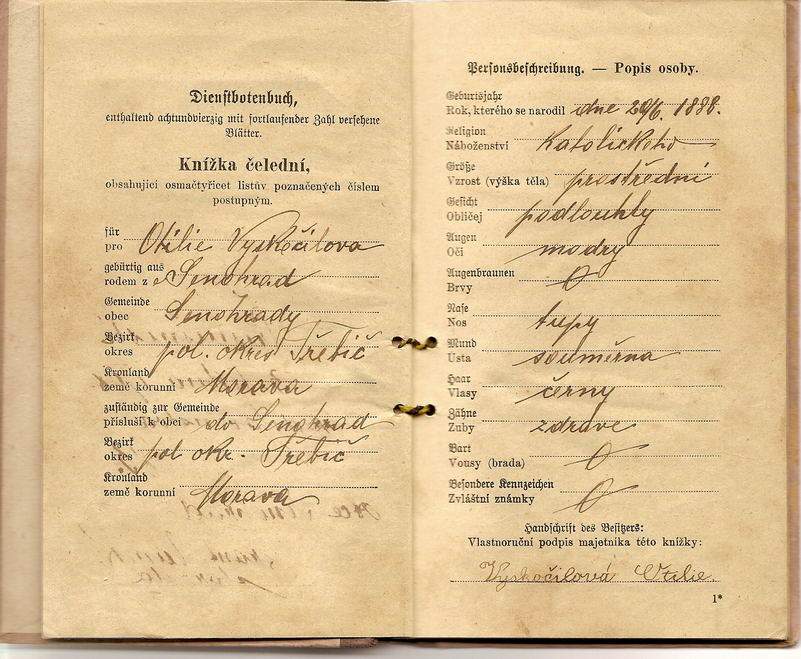 Dienstbotenbuch,
enthaltend achtundvierzig mit fortlaufender Zahl versehene
Blätter.
Knížka čelední,
obsahující osmačtyřicet listův poznačených číslem
postupným.
für
pro Otilie Vyskočilova
gebürtig aus
rodem z e Senohrad
Gemeinde
obec Senohrady
Bezirk
okres pol. okres Třebíč
Kronland
země korunní Morava
zuständig zur Gemeinde
přísluší k obci do Senohrad
Bezirk
okres pol okr. Třebíč
Kronland
země korunní Morava
Personsbeschreibung. — Popis osoby.
Geburtsjahr
Rok, kterého se narodil dne 29/6. 1888.
Religion
Náboženství Katolického
Größe
Vzrost (výška těla) prostřední
Gesicht
Obličej podlouhly
Augen
Oči modry
Augenbraunen
Brvy 0
Nase
Nos tupy
Mund
Usta souměrna
Haar
Vlasy černy
Zähne
Zuby zdrave
Bart
Vousy (brada) 0
Besondere Kennzeichen
Zvláštní známky 0
Handschrift des Besitzers:
Vlastnoruční podpis majetníka této knížky:
Vyskočilová Otilie.
1*